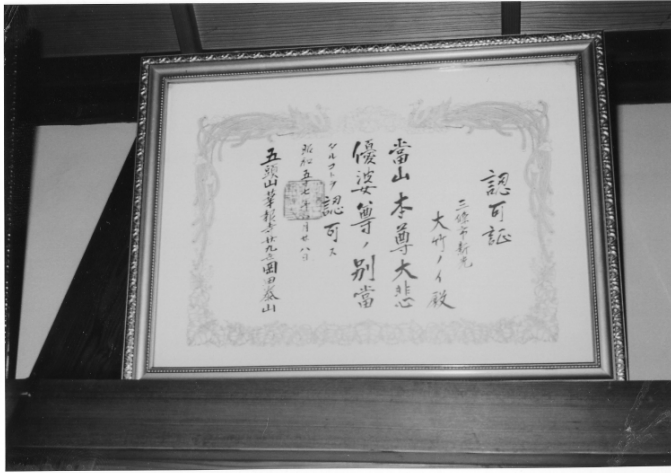 認可証
三條市新光
大竹ノイ殿
當山本尊大悲
優婆尊ノ別當
タルコトヲ認可ス
昭和五十七年 月廿八日
五頭山華報寺廿九世園田泰山